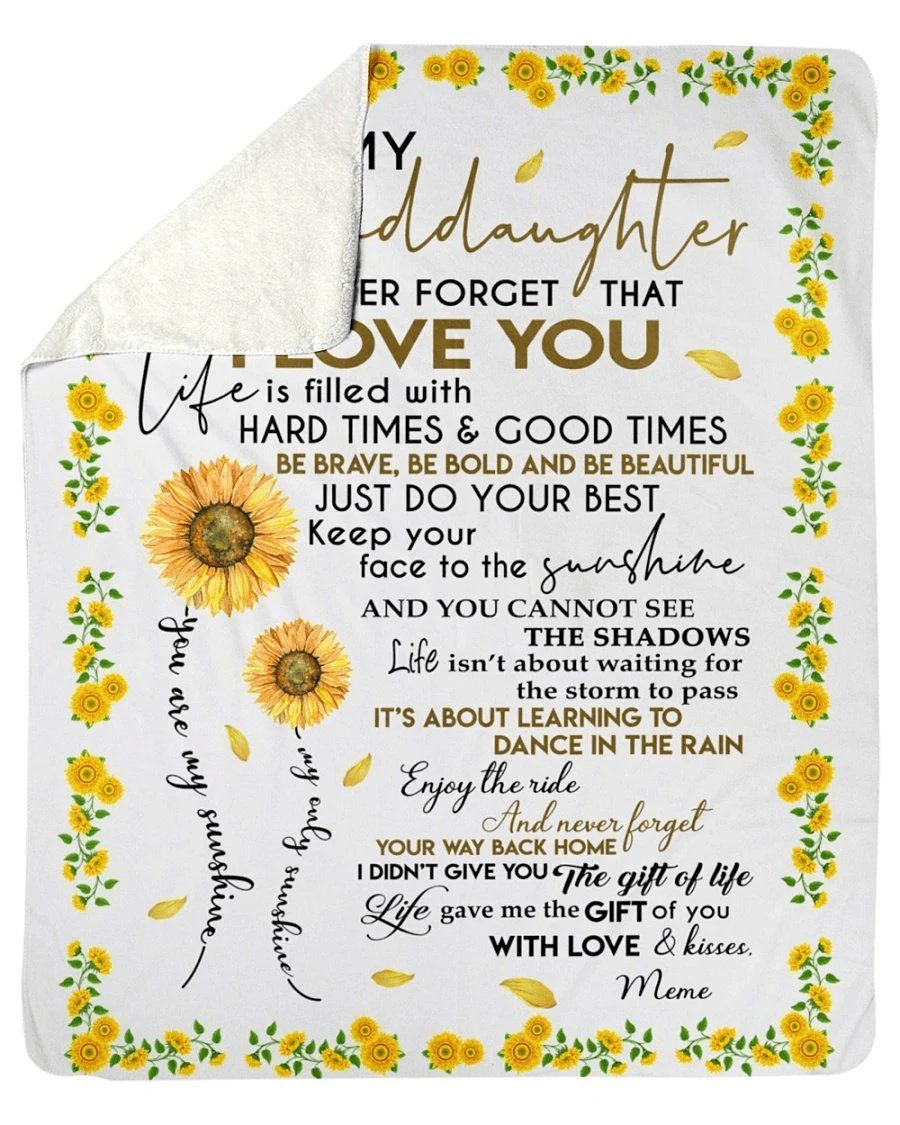 MY
ddaughter
ER FORGET THAT
I LOVE YOU
Life is filled with
HARD TIMES & GOOD TIMES
BE BRAVE, BE BOLD AND BE BEAUTIFUL
JUST DO YOUR BEST
Keep your
face to the sunshine
AND YOU CANNOT SEE
THE SHADOWS
Life isn't about waiting for
the storm to pass
IT'S ABOUT LEARNING TO
DANCE IN THE RAIN
Enjoy the ride
And never forget
YOUR WAY BACK HOME
I DIDN'T GIVE YOU The gift of life
Life gave me the GIFT of you
WITH LOVE & kisses,
Meme
you are my sunshine
my only sunshine